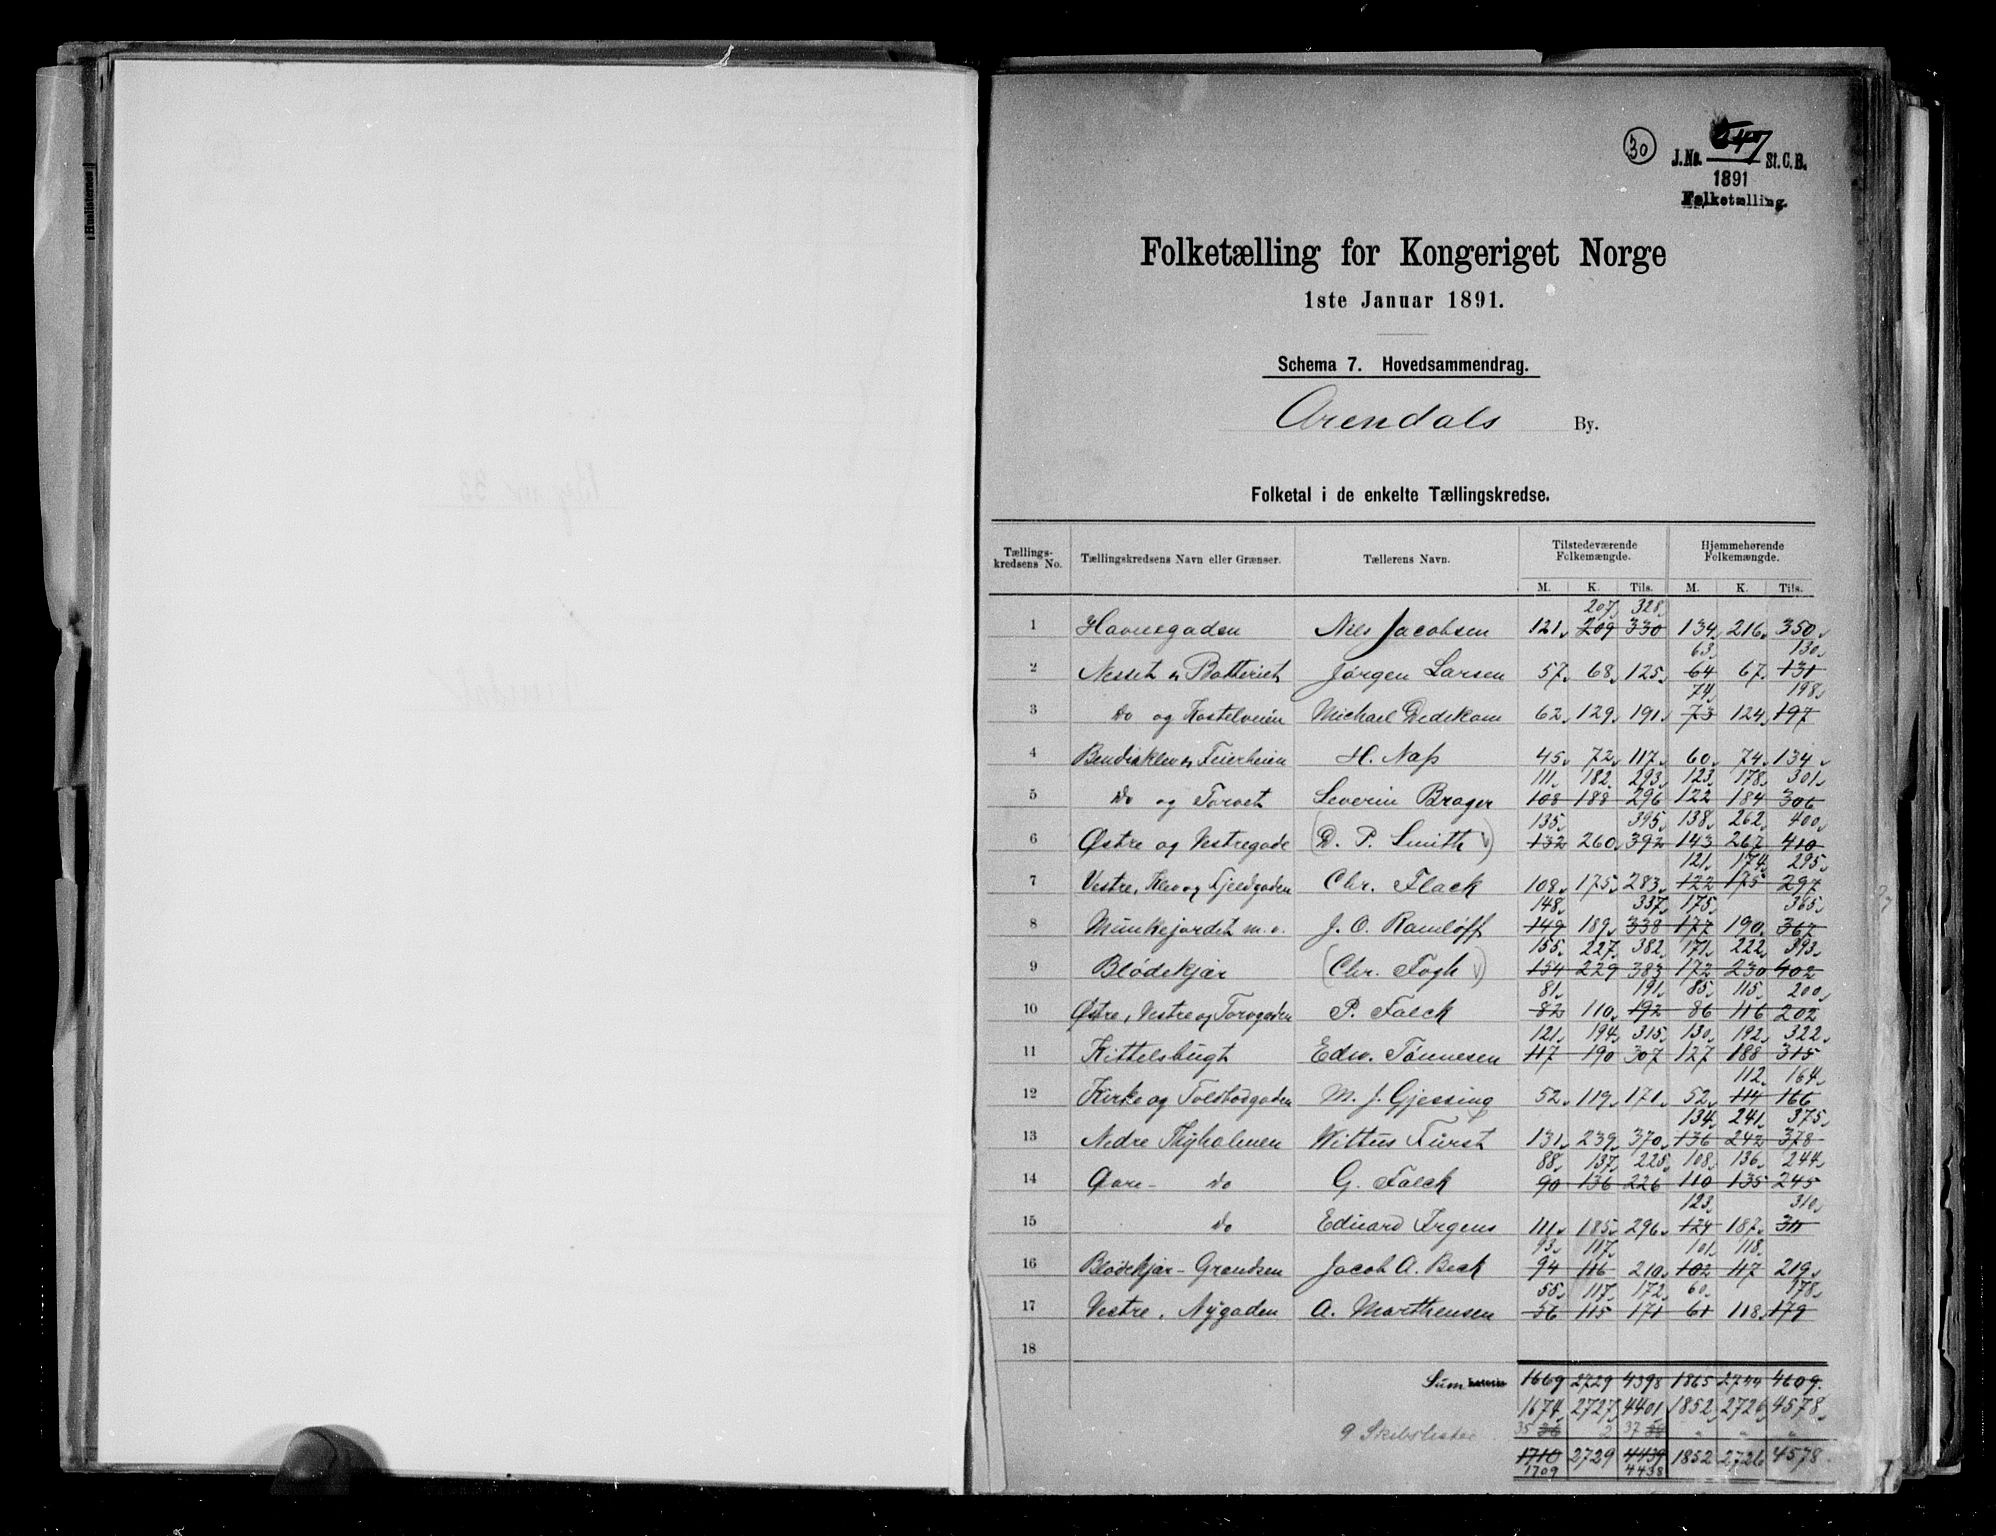 (Huslisternes)
30
J.No. 647 St. C. B.
1891
Folketælling.
Folketælling for Kongeriget Norge
1ste Januar 1891.
Schema 7. Hovedsammendrag.
Arendals By.
Folketal i de enkelte Tællingskredse.
Tællings-kredsens No. Tællingskredsens Navn eller Grænser. Tællerens Navn. Tilstedeværende Folkemængde. Hjemmehørende Folkemængde.
M. K. Tils. M. K. Tils.
207 328
1 Havnegaden Nils Jacobsen 121 209 330 134 216 350
63 130
2 Nesset og Batteriet Jørgen Larsen 57 68 125 64 67 131
74 198
3 Do og Kastelveien Michael Dedekam 62 129 191 73 124 197
4 Bendiksklev og Feierheien H. Nass 45 72 117 60 74 134
111 182 293 123 178 301
5 Do og Torvet Severin Brager 108 188 296 122 184 306
135 395 138 262 400
6 Østre og Vestregade (D. P. Smith) 132 260 392 143 267 410
121 174 295
7 Vestre, Klev og Fjeldgaden Chr. Flack 108 175 283 122 175 297
148 337 175 365
8 Munkejordet m. v. J. O. Ramløff 149 189 338 177 190 367
155 227 382 171 222 393
9 Blødekjær (Chr. Fogh) 154 229 383 172 230 402
81 191 85 115 200
10 Østre, Vestre og Torvgaden P. Falck 82 110 192 86 116 202
121 194 315 130 192 322
11 Kittelsbugt Edw. Tønnesen 117 190 307 127 188 315
112 164
12 Kirke og Tolbodgaden M. J. Gjessing 52 119 171 52 114 166
134 241 375
13 Nedre Thyholmen Wittus Fürst 131 239 370 136 242 378
88 137 225 108 136 244
14 Øvre - Do G. Falck 90 136 226 110 135 245
123 310
15 Do Eduard Irgens 111 185 296 124 187 311
93 117 101 118
16 Blødekjær - Grændsen Jacob A. Beck 94 116 210 102 117 219
55 117 172 60 178
17 Vestre, Nygaden A. Marthensen 56 115 171 61 118 179
18
Sum 1669 2729 4398 1865 2744 4609
1674 2727 4401 1852 2726 4578
9 Skibslister 35 36 2 37 38 " " "
1710 2729 4439 1852 2726 4578
1709 4438